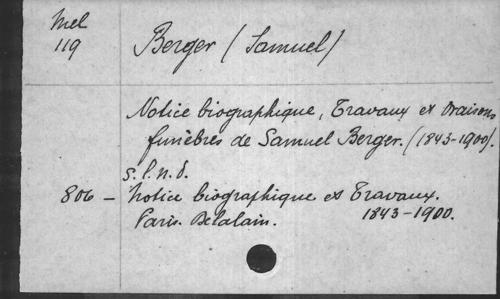 Mel
119
Berger (Samuel)
Notice biographique, Travaux et Oraisons
funèbres de Samuel Berger. (1843-1900).
s.l.n.d.
806 - Notice biographique et Travaux.
Paris. Delalain. 1843-1900.